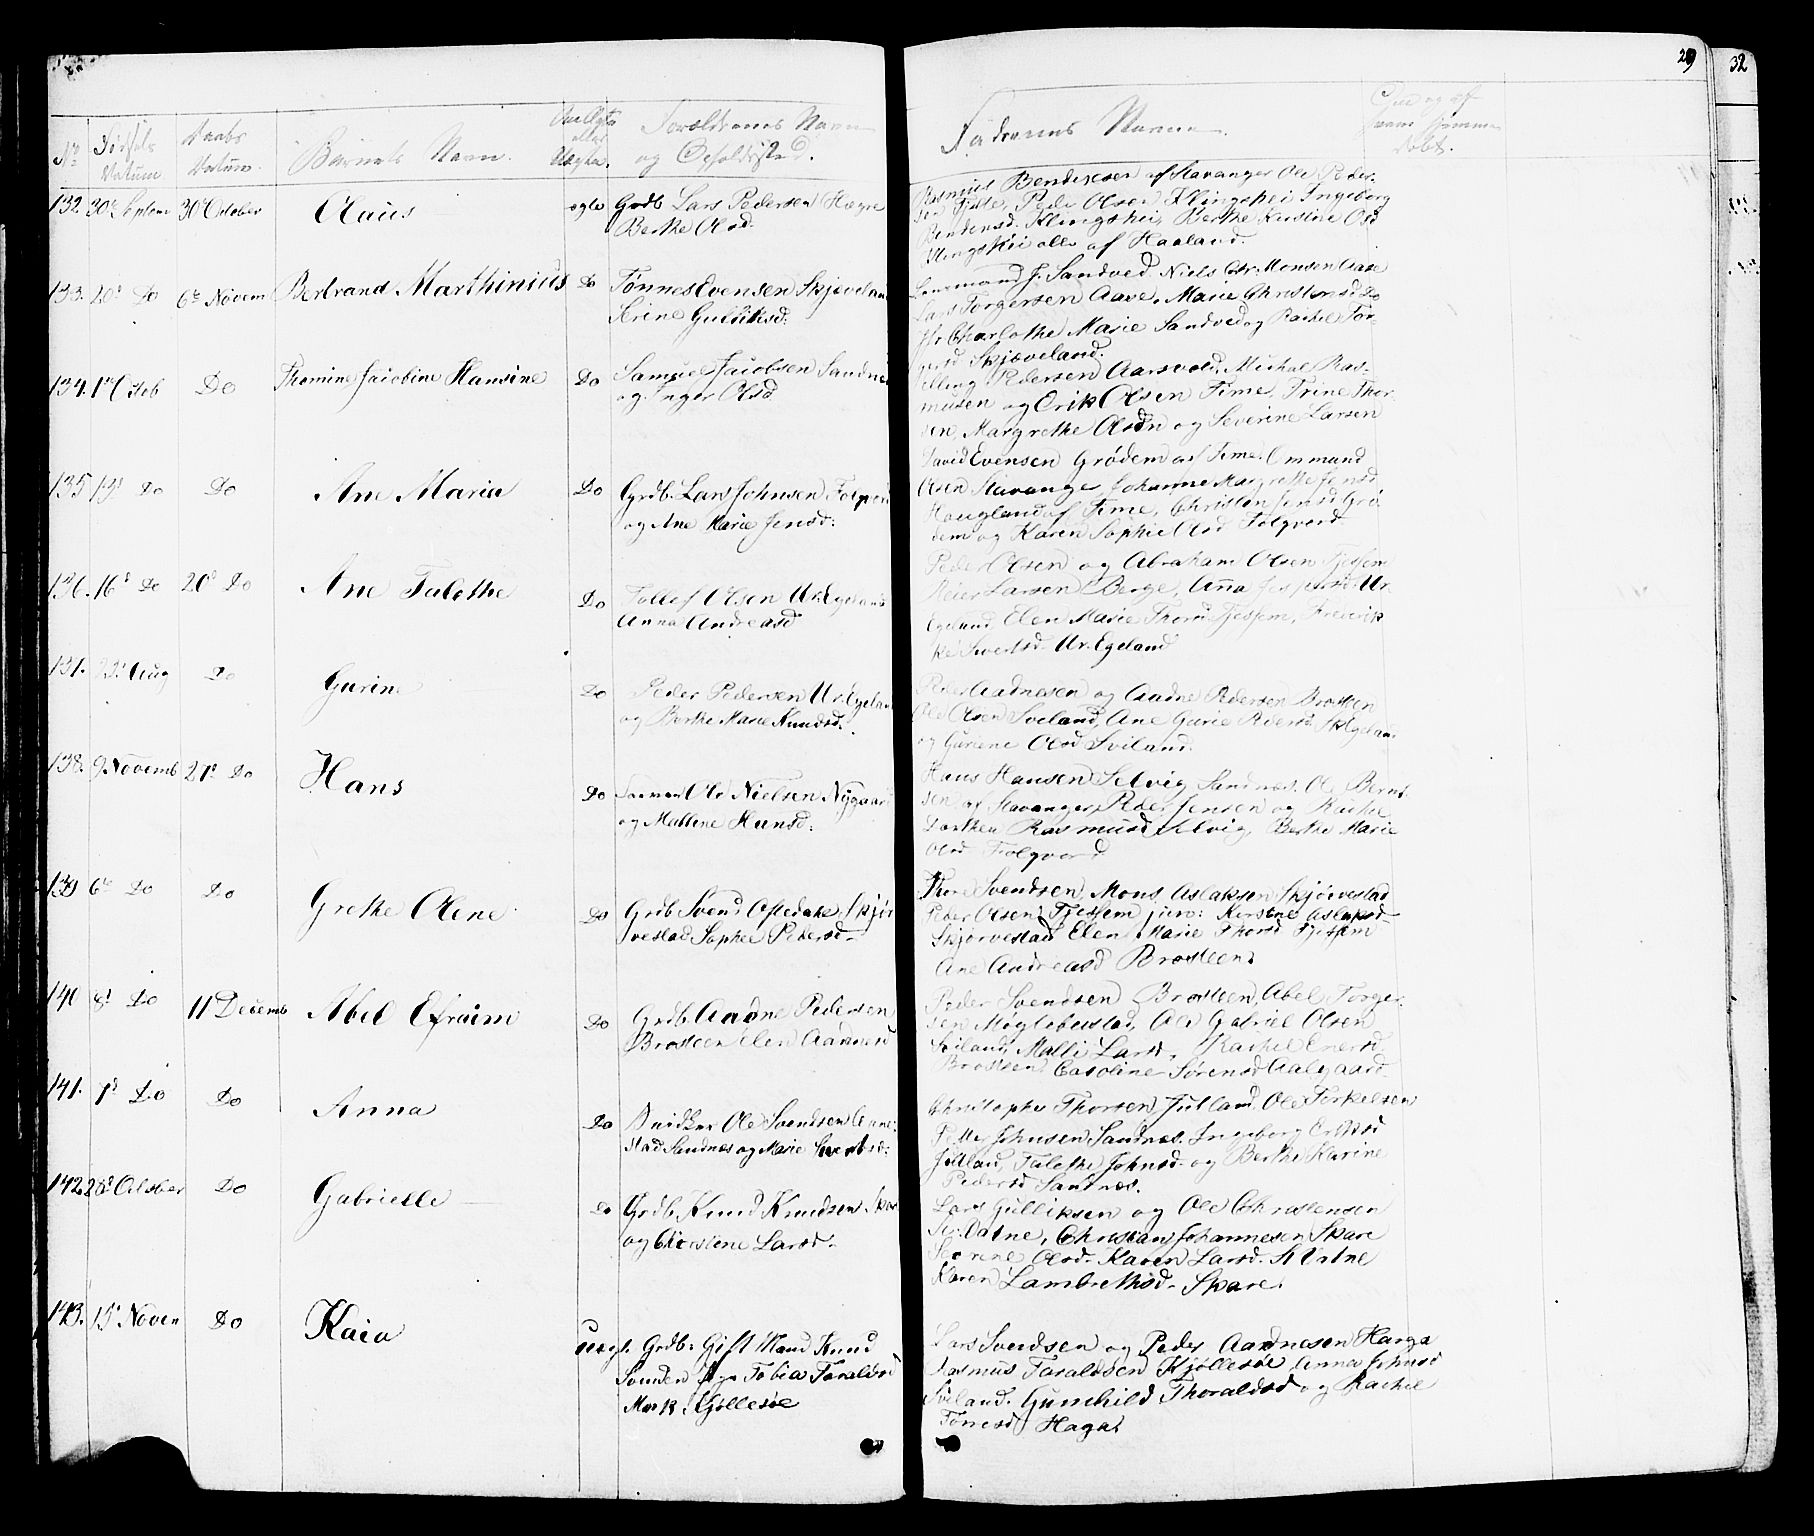 29
32
No
Fødsels
Datum
Daabs
Datum.
Barnets Navn.
Om Ægte
eller
Uægte.
Forældrenes Navn
og Opholdssted.
Faddernes Navne.
hjemme
døbt.
132. 30te Septem 30te October Claus ægte Grdb. Lars Pedersen Høgre
Berthe Olsd.
Rasmus Bendixsen af Stavanger Ole Peder-
sen, Peder Olsen Klingshei Ingeborg
Klingshei, Berthe Kirstine Olsd
Klingshei alle af Haaland.
133. 20d Do 6te Novem Bertrand Marthinius Do Tønnes Evensen Skjæveland
Serine Gulliksd:
Lensmand J. Sandved Niels Chr. Monsen Aase
Lars Torgersen Aase, Marie Christensd Do
Jfr Charlothe Marie Sandved og Rachel Tor-
gersd Skjæveland.
134. 1te Octob Do Thomine Jacobine Hansine Do Samuel Jacobsen Sandnes
og Inger Olsd
Elling Pedersen Aarsvold, Michal Ras-
musen og Erik Olsen Time, Trine Thor-
sen, Margrethe Olsdn og Severine Larsen
135 19d Do Do Ane Maria Do Grdb. Lars Johnsen Folqvord
og Ane Marie Jensd:
David Evensen Grødem af Time. Ommund
Olsen Stavanger, Johanne Margrethe Jensd
Hougland af Time, Christen Jensd Grø-
dem og Karen Sophie Olsd Folqvord
136. 16d Do 20d Do Ane Talethe Do Tollef Olsen Ur. Egeland
Anna Andreasd
Peder Olsen og Abraham Olsen Tjessem
Meier Larsen Berge, Anna Jespersd Ur.
Egeland Elen Marie Thorsd Tjessem, Frederik
ke Sivertsd. Ur. Egeland
137. 23d Aug Do Gurine Do Peder Pedersen Ur. Egeland
og Berthe Marie Knudsd.
Peder Aadnesen og Aadne Pedersen Brosteen
Ole Olsen Sviland, Ane Gurie Pedersd. Egeland
og Guriene Olsd Sviland.
138. 9 Novemb 27d Do Hans Do Ole Nielsen Nygaard
og Mallene Hansd:
Hans Hansen Selvig Sandnæs. Ole Bernt
sen af Stavanger, Peder Jensen og Rachel
Dorthea Rasmusd Selvig, Berthe Marie
Olsd Folqvord
139 6te Do Do Grethe Olene Do Grdb Svend Osteda Skjør
vestad Sophie Pedersd.
Thore Svendsen, Mons Aslaksen Skjørvestad
Peder Olsen Tjessem jun: Kirstine Aslaksd
Skjørvestad Elen Marie Thorsd Tjessem
Ane Andreasd Brosteen.
140 8d Do 11 Decemb Abel Efraim Do Grdb. Aadne Pedersen
Brosteen Elen Aadnesd
Peder Svendsen Brosteen, Abel Torger-
sen Møglebustad, Ole Gabriel Olsen
Sviland, Malli Larsd, Rachel Enersd
Brosteen. Caroline Sørensd Aalgaard
141. 7d Do Do Anna Do Snidker Ole Svendsen Aune-
stad Sandnæs og Marie Sivertsd:
Christopher Thorsen Jutland. Ole Torkelsen
Petter Johnsen Sandnæs. Ingeborg Eriksd
Jutland, Talethe Johnsd. og Berthe Karine
Pedersd Sandnæs.
142. 28d October Do Gabrielle Do Grdb. Knud Knudsen Skare
og Christene Larsd.
Lars Gulliksen og Ole Christensen
St. Vatne, Christian Johannesen Skare
Severine Olsd. Karen Larsd. St Vatne
Karen Lambrethsd. Skare.
143. 15d Noven Do Kaia Uægt. Grdb. Gift Mand Knud
Svendsen Pige Tobia Taraldsd
Mark. Kjøllesøe
Lars Svendsen og Peder Aadnesen Hanga
Rasmus Taraldsen Kjøllesøe Anna Johnsd
Sviland. Gunhild Thoraldsd og Rachel
Tørresd Haga.